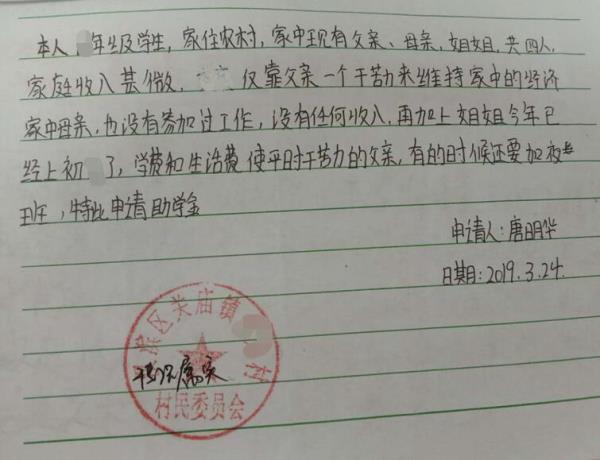 本人 年级学生，家住农村，家中现有父亲、母亲，姐姐，共四人，
家庭收入甚微， 仅靠父亲一个干苦力来维持家中的经济
家中母亲，也没有参加过工作，没有任何收入，再加上姐姐今年已
经上初 了，学费和生活费使平时干苦力的父亲，有的时候还要加夜
班，特此申请助学金
申请人：唐明华
日期：2019.3.24.
区关庙镇 村
情况属实
村民委员会